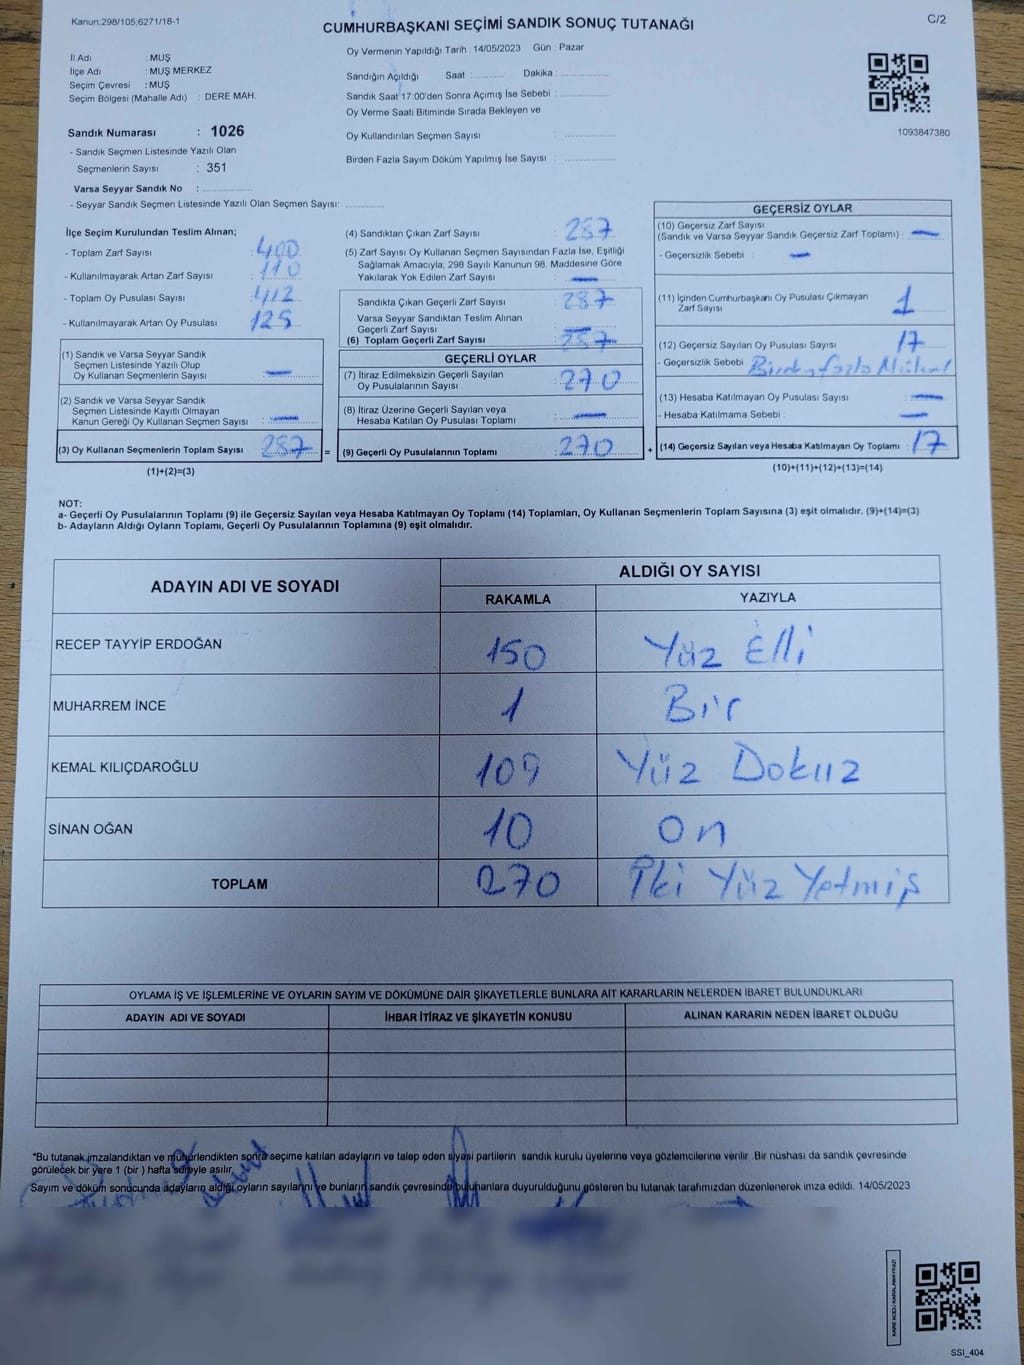 Kanun;298/105;6271/18-1
CUMHURBAŞKANI SEÇİMİ SANDIK SONUÇ TUTANAĞI
C/2
İl Adı : MUŞ
İlçe Adı : MUŞ MERKEZ
Seçim Çevresi : MUŞ
Seçim Bölgesi (Mahalle Adı) : DERE MAH.
Sandık Numarası : 1026
- Sandık Seçmen Listesinde Yazılı Olan
Seçmenlerin Sayısı : 351
Varsa Seyyar Sandık No : ..............
- Seyyar Sandık Seçmen Listesinde Yazılı Olan Seçmen Sayısı: ............
Oy Vermenin Yapıldığı Tarih : 14/05/2023 Gün : Pazar
Sandığın Açıldığı Saat :.......... Dakika : ................
Sandık Saat 17:00'den Sonra Açımış İse Sebebi : ................
Oy Verme Saati Bitiminde Sırada Bekleyen ve
Oy Kullandırılan Seçmen Sayısı : ................
Birden Fazla Sayım Döküm Yapılmış İse Sayısı : ................
1093847380
İlçe Seçim Kurulundan Teslim Alınan;
- Toplam Zarf Sayısı : 400
- Kullanılmayarak Artan Zarf Sayısı : 110
- Toplam Oy Pusulası Sayısı : 412
- Kullanılmayarak Artan Oy Pusulası : 125
(1) Sandık ve Varsa Seyyar Sandık
Seçmen Listesinde Yazılı Olup
Oy Kullanan Seçmenlerin Sayısı : —
(2) Sandık ve Varsa Seyyar Sandık
Seçmen Listesinde Kayıtlı Olmayan
Kanun Gereği Oy Kullanan Seçmen Sayısı : —
(3) Oy Kullanan Seçmenlerin Toplam Sayısı : 287 =
(1)+(2)=(3)
(4) Sandıktan Çıkan Zarf Sayısı : 287
(5) Zarf Sayısı Oy Kullanan Seçmen Sayısından Fazla İse, Eşitliği
Sağlamak Amacıyla; 298 Sayılı Kanunun 98. Maddesine Göre
Yakılarak Yok Edilen Zarf Sayısı : —
Sandıkta Çıkan Geçerli Zarf Sayısı : 287
Varsa Seyyar Sandıktan Teslim Alınan
Geçerli Zarf Sayısı : —
(6) Toplam Geçerli Zarf Sayısı : 287
GEÇERLİ OYLAR
(7) İtiraz Edilmeksizin Geçerli Sayılan
Oy Pusulalarının Sayısı : 270
(8) İtiraz Üzerine Geçerli Sayılan veya
Hesaba Katılan Oy Pusulaları Toplamı : —
(9) Geçerli Oy Pusulalarının Toplamı : 270 +
GEÇERSİZ OYLAR
(10) Geçersiz Zarf Sayısı
(Sandık ve Varsa Seyyar Sandık Geçersiz Zarf Toplamı) : —
- Geçersizlik Sebebi : —
(11) İçinden Cumhurbaşkanı Oy Pusulası Çıkmayan
Zarf Sayısı : 1
(12) Geçersiz Sayılan Oy Pusulası Sayısı : 17
- Geçersizlik Sebebi : Birden fazla Mühür
(13) Hesaba Katılmayan Oy Pusulası Sayısı : —
- Hesaba Katılmama Sebebi : —
(14) Geçersiz Sayılan veya Hesaba Katılmayan Oy Toplamı : 17
(10)+(11)+(12)+(13)=(14)
NOT:
a- Geçerli Oy Pusulalarının Toplamı (9) ile Geçersiz Sayılan veya Hesaba Katılmayan Oy Toplamı (14) Toplamları, Oy Kullanan Seçmenlerin Toplam Sayısına (3) eşit olmalıdır. (9)+(14)=(3)
b- Adayların Aldığı Oyların Toplamı, Geçerli Oy Pusulalarının Toplamına (9) eşit olmalıdır.
ADAYIN ADI VE SOYADI
ALDIĞI OY SAYISI
RAKAMLA YAZIYLA
RECEP TAYYİP ERDOĞAN 150 Yüz Elli
MUHARREM İNCE 1 Bir
KEMAL KILIÇDAROĞLU 109 Yüz Dokuz
SİNAN OĞAN 10 On
TOPLAM 270 İki Yüz Yetmiş
OYLAMA İŞ VE İŞLEMLERİNE VE OYLARIN SAYIM VE DÖKÜMÜNE DAİR ŞİKAYETLERLE BUNLARA AİT KARARLARIN NELERDEN İBARET BULUNDUKLARI
ADAYIN ADI VE SOYADI İHBAR İTİRAZ VE ŞİKAYETİN KONUSU ALINAN KARARIN NEDEN İBARET OLDUĞU
"Bu tutanak imzalandıktan ve mühürlendikten sonra seçime katılan adayların ve talep eden siyasi partilerin sandık kurulu üyelerine veya gözlemcilerine verilir. Bir nüshası da sandık çevresinde
görülecek bir yere 1 (bir ) hafta süreyle asılır.
Sayım ve döküm sonucunda adayların aldığı oyların sayılarını ve bunların sandık çevresinde bulunanlara duyurulduğunu gösteren bu tutanak tarafımızdan düzenlenerek imza edildi. 14/05/2023
KARE KODU KARALAMAYINIZ!
SSI_404